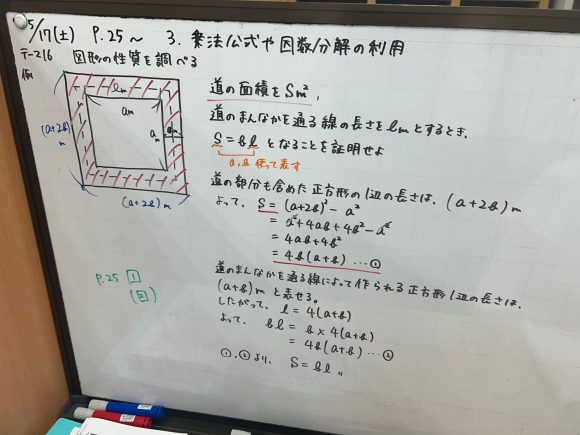 5/17(土) P.25～ 3. 乗法公式や因数分解の利用
テーマ6 図形の性質を調べる
例
lm
am
am
bm
(a+2b)m
(a+2b)m
道の面積をSm²,
道のまんなかを通る線の長さをlmとするとき,
S=blとなることを証明せよ
a,b使って表す
道の部分も含めた正方形の1辺の長さは, (a+2b)m
よって, S=(a+2b)²-a²
=a²+4ab+4b²-a²
=4ab+4b²
=4b(a+b)…①
道のまんなかを通る線によって作られる正方形1辺の長さは,
(a+b)mと表せる。
したがって, l=4(a+b)
よって, bl=b×4(a+b)
=4b(a+b)…②
①,②より, S=bl〃
P.25 1
(2)